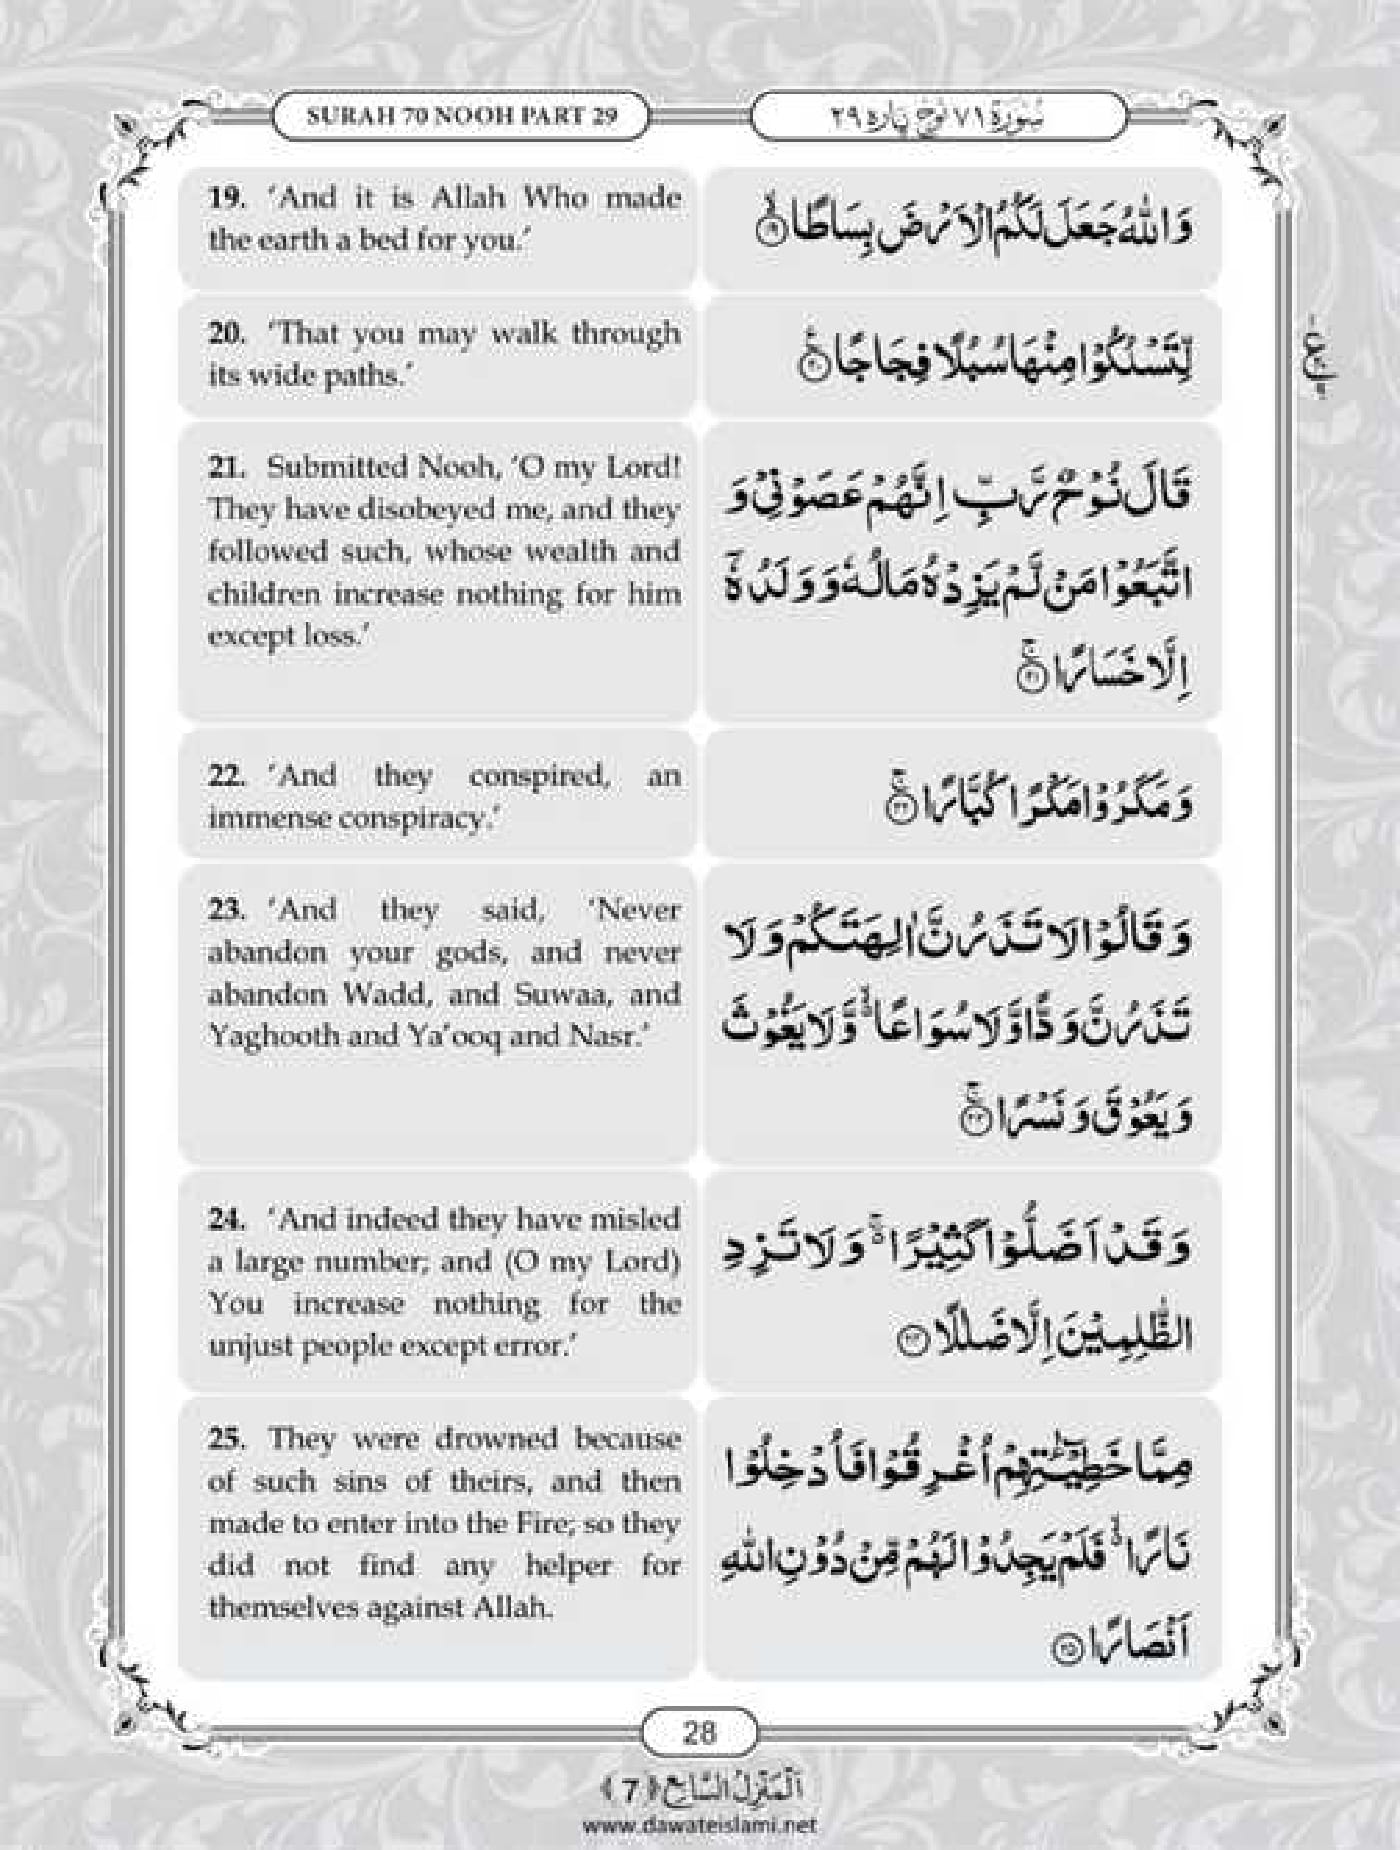 SURAH 70 NOOH PART 29
سُوْرَةُ ٧١ نُوْح پاره ٢٩
19. ‘And it is Allah Who made
the earth a bed for you.’
وَاللّٰهُ جَعَلَ لَكُمُ الْاَرْضَ بِسَاطًا ۙ﴿۱۹﴾
20. ‘That you may walk through
its wide paths.’
لِّتَسْلُكُوْا مِنْهَا سُبُلًا فِجَاجًا ۠﴿۲۰﴾
21. Submitted Nooh, ‘O my Lord!
They have disobeyed me, and they
followed such, whose wealth and
children increase nothing for him
except loss.’
قَالَ نُوْحٌ رَّبِّ اِنَّهُمْ عَصَوْنِیْ وَ
اتَّبَعُوْا مَنْ لَّمْ یَزِدْهُ مَالُهٗ وَ وَلَدُهٗۤ
اِلَّا خَسَارًا ۚ﴿۲۱﴾
22. ‘And they conspired, an
immense conspiracy.’
وَ مَكَرُوْا مَكْرًا كُبَّارًا ۚ﴿۲۲﴾
23. ‘And they said, ‘Never
abandon your gods, and never
abandon Wadd, and Suwaa, and
Yaghooth and Ya’ooq and Nasr.’
وَ قَالُوْا لَا تَذَرُنَّ اٰلِهَتَكُمْ وَ لَا
تَذَرُنَّ وَدًّا وَّ لَا سُوَاعًا ۙ۬ وَّ لَا یَغُوْثَ
وَ یَعُوْقَ وَ نَسْرًا ۚ﴿۲۳﴾
24. ‘And indeed they have misled
a large number; and (O my Lord)
You increase nothing for the
unjust people except error.’
وَ قَدْ اَضَلُّوْا كَثِیْرًا ۚ۬ وَ لَا تَزِدِ
الظّٰلِمِیْنَ اِلَّا ضَلٰلًا ﴿۲۴﴾
25. They were drowned because
of such sins of theirs, and then
made to enter into the Fire; so they
did not find any helper for
themselves against Allah.
مِمَّا خَطِیْٓــٰٔتِهِمْ اُغْرِقُوْا فَاُدْخِلُوْا
نَارًا ۙ۬ فَلَمْ یَجِدُوْا لَهُمْ مِّنْ دُوْنِ اللّٰهِ
اَنْصَارًا ﴿۲۵﴾
28
اَلْمَنْزِلُ السَّابِع ﴿7﴾
www.dawateislami.net